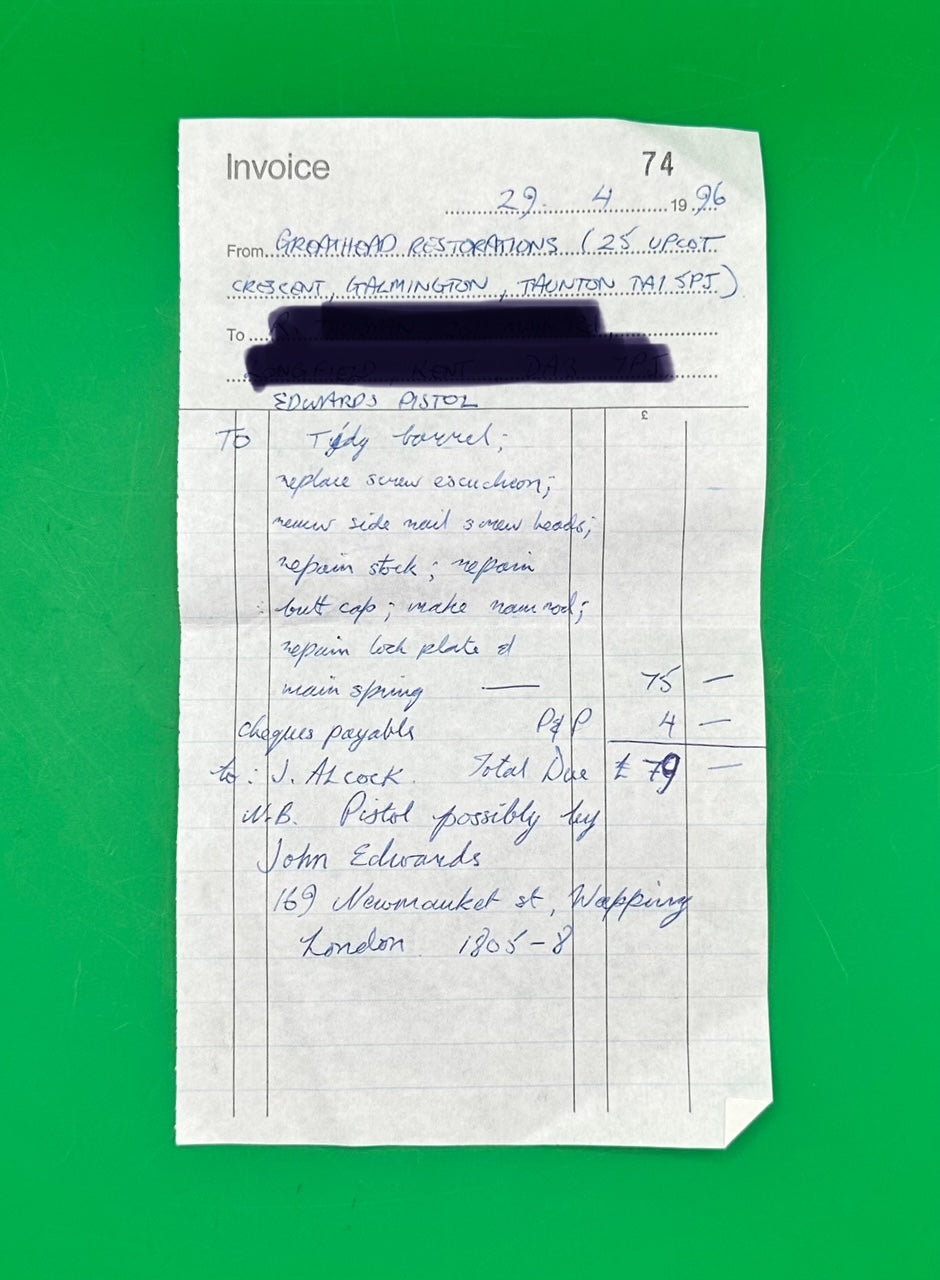 Invoice 74
29. 4 1996
From GREATHEAD RESTORATIONS (25 UPCOT
CRESCENT, GALMINGTON, TAUNTON TA1 5PJ)
To
EDWARDS PISTOL
£
To Tidy barrel;
replace screw escucheon;
renew side nail screw heads;
repair stock; repair
butt cap; make ramrod;
repair lock plate &
main spring — 75 —
cheques payable P&P 4 —
to: J. ALCOCK. Total Due £79 —
N.B. Pistol possibly by
John Edwards
169 Newmarket st, Wapping
London 1805-8